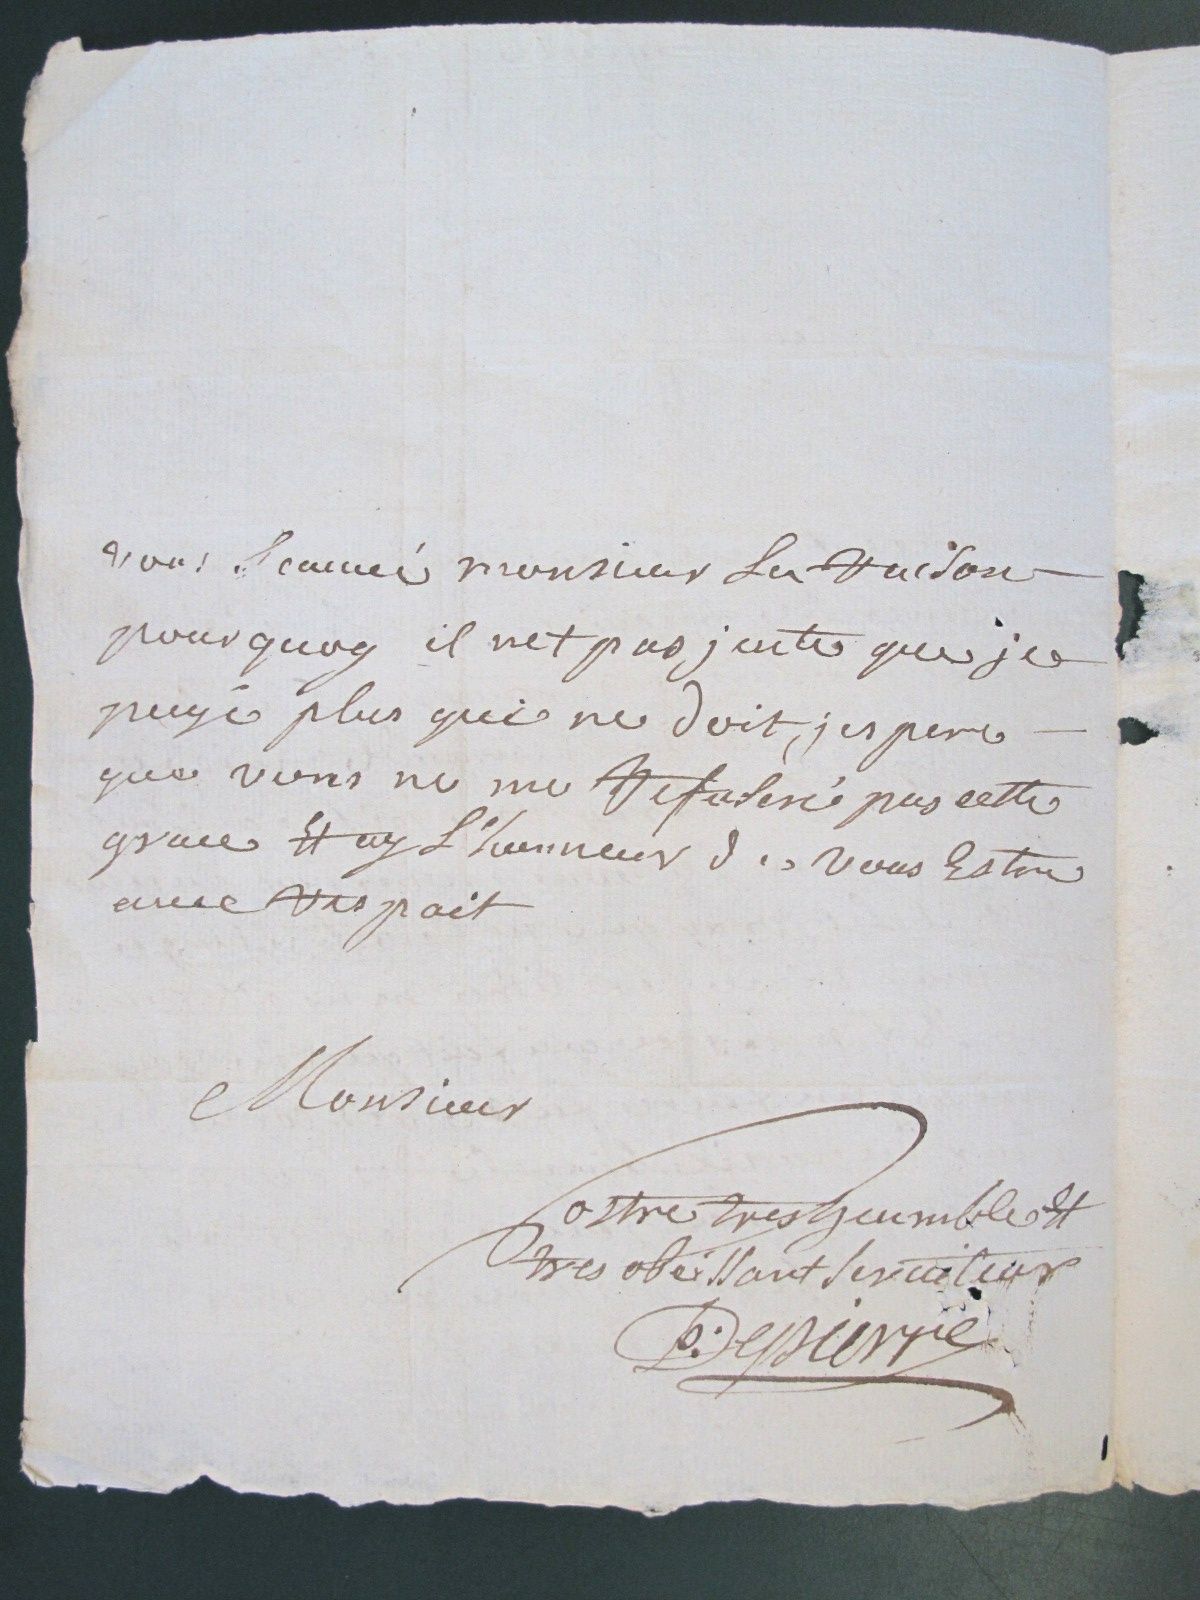 vous scaué monsieur La Raison
pourquoy il net pas juste que je
payé plus qui ne doit, jespere
que vous ne me Refuseré pas cette
grace Et ay L'honneur de vous Estre
auec Respait
Monsieur
Vostre tres heumble Et
tres obeissant seruiteur
Depierre